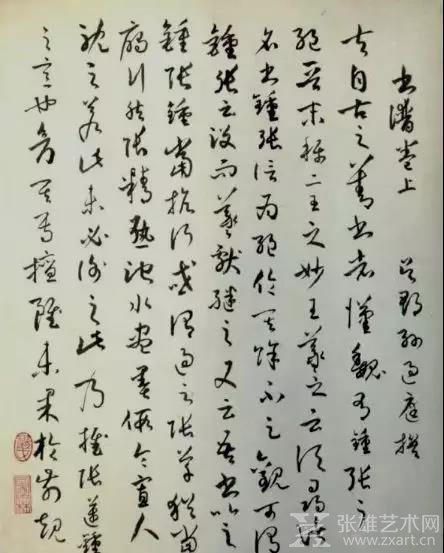 書譜卷上 吳郡孫過庭撰
夫自古之善書者漢魏有鍾張之
絕晉末稱二王之妙王羲之云頃尋諸
名書鍾張信為絕倫其餘不足觀可謂
鍾張云沒而羲獻繼之又云吾書比之
鍾張鍾當抗行或謂過之張草猶當
鴈行然張精熟池水盡墨假令寡人
耽之若此未必謝之此乃推張邁鍾
之意也考其專擅雖未果於前規
张雄艺术网
www.zxart.cn